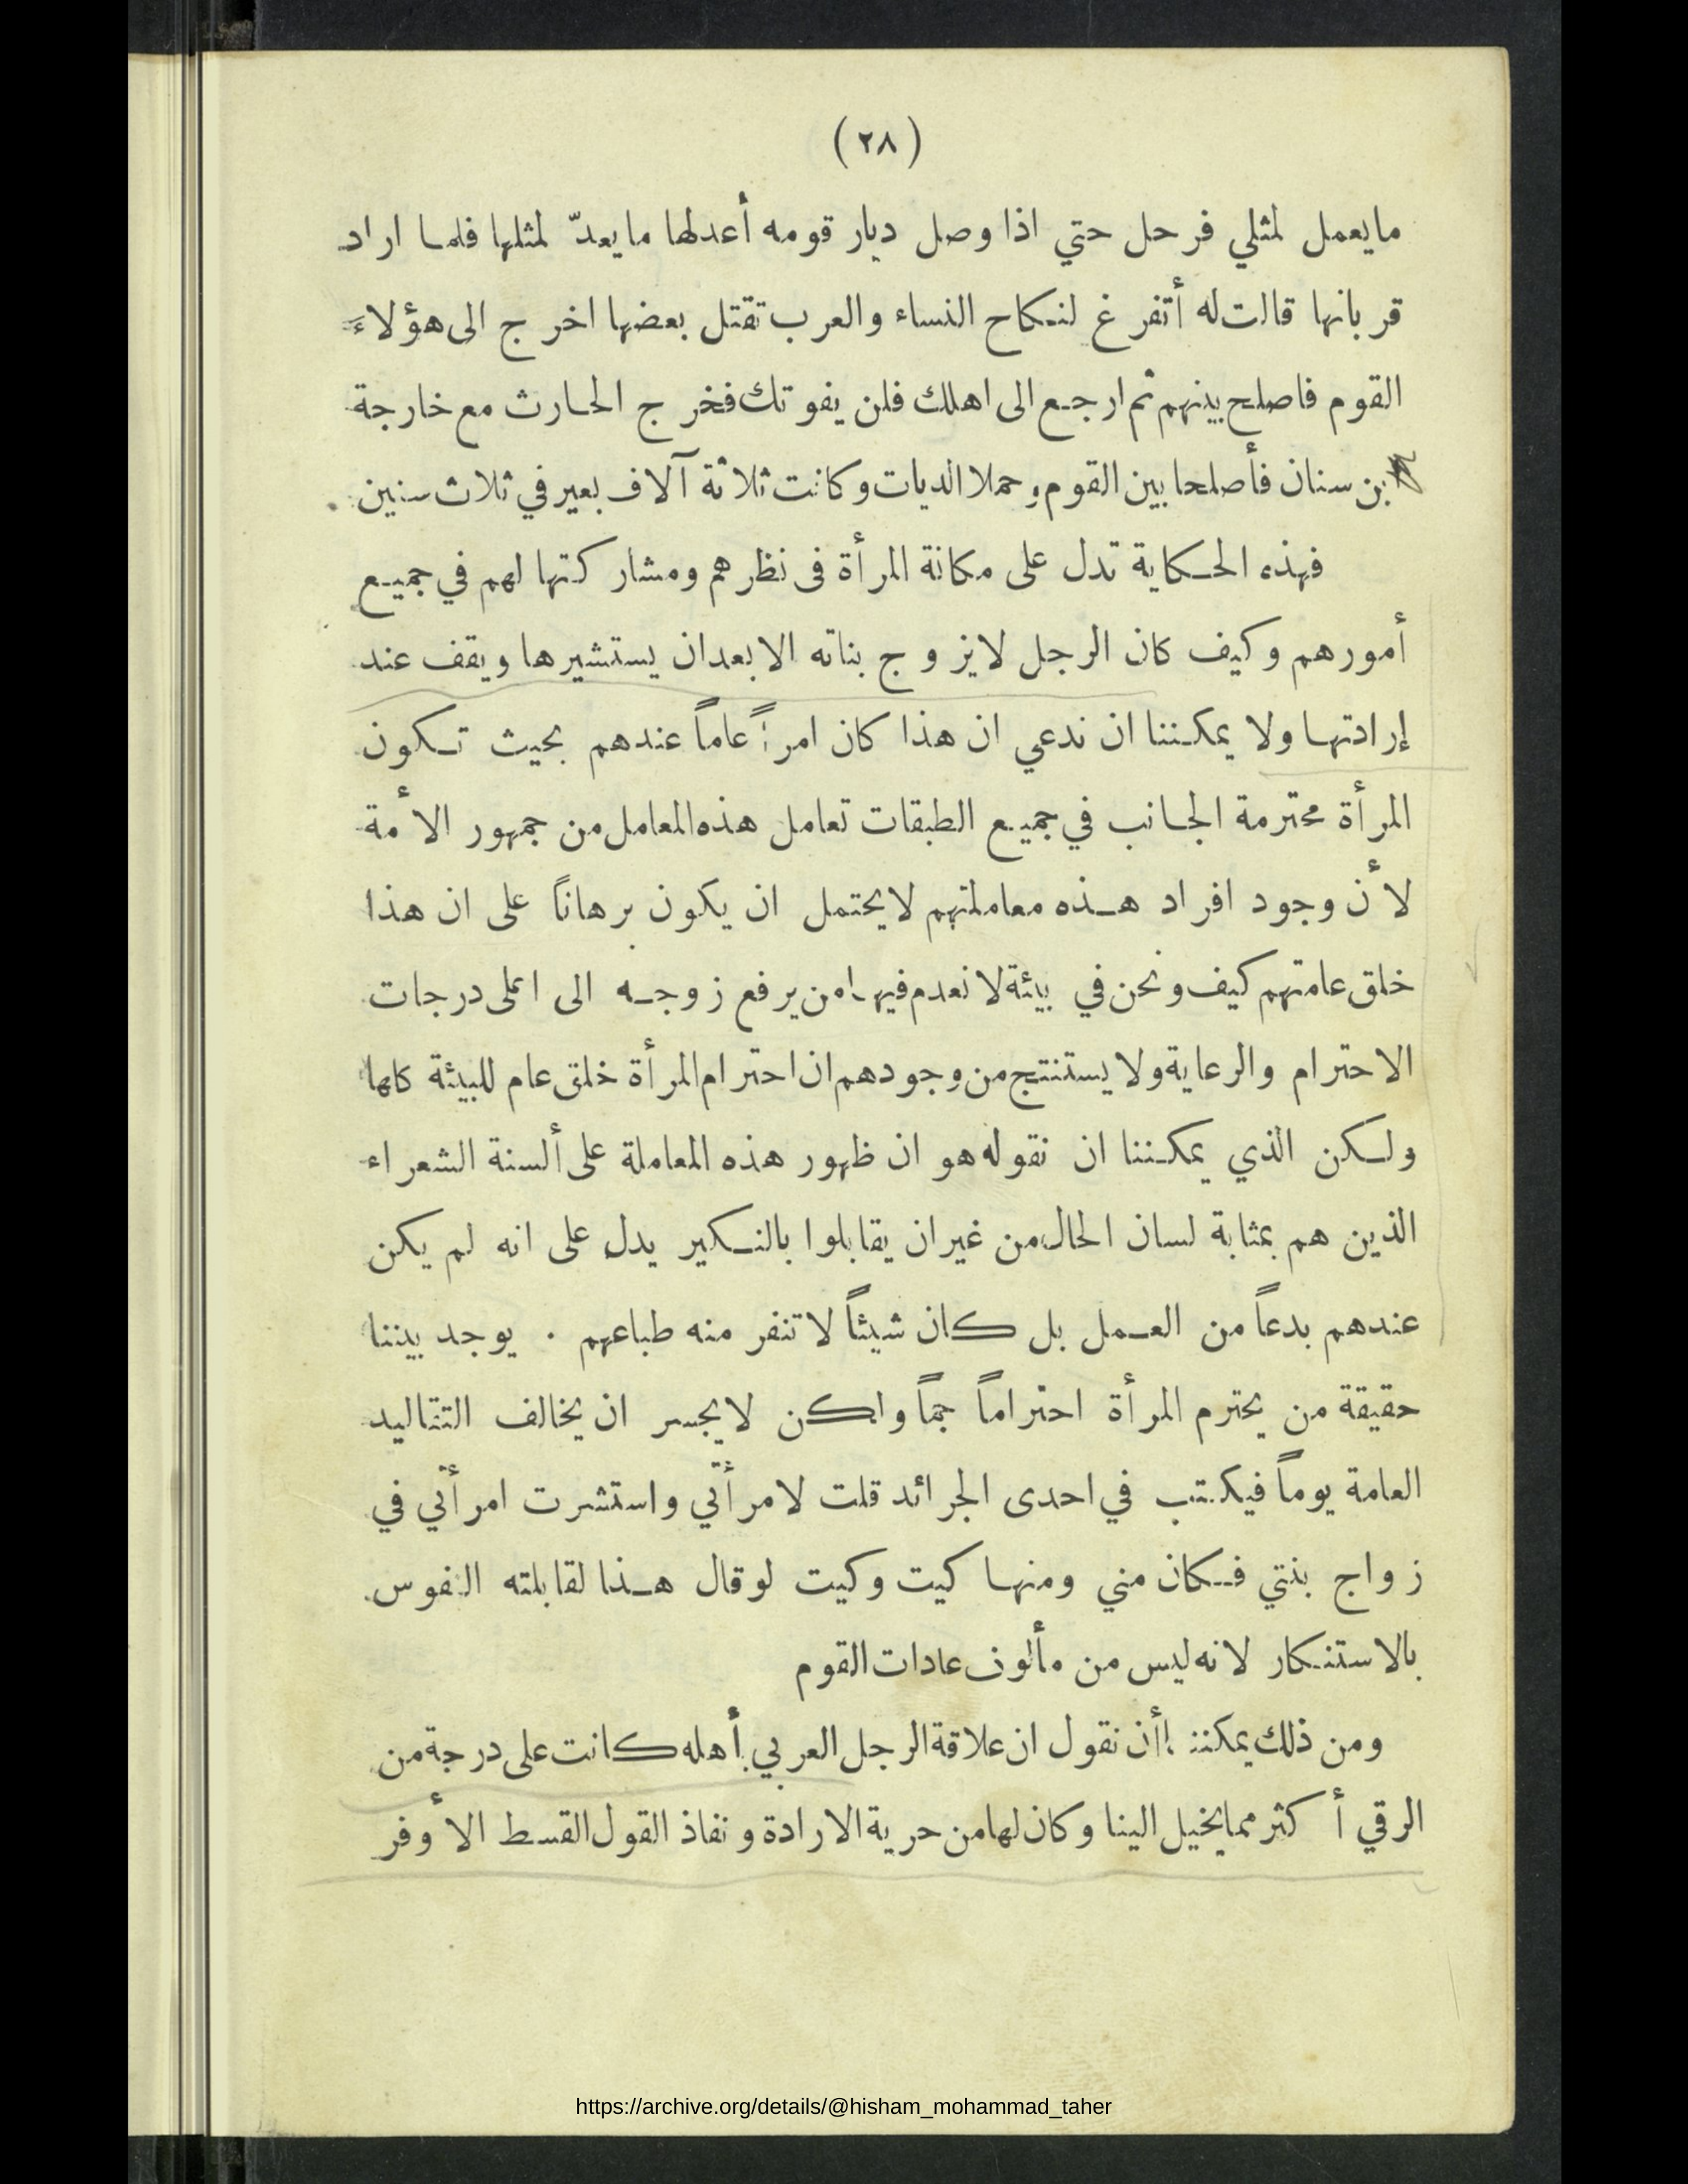 (٢٨)
ما يعمل لمثلي فرحل حتي اذا وصل ديار قومه أعدلها ما يعدّ لمثلها فلما اراد
قربانها قالت له أتفرغ لنكاح النساء والعرب تقتل بعضها اخرج الى هؤلاء
القوم فاصلح بينهم ثم ارجع الى اهلك فلن يفوتك فخرج الحارث مع خارجة
بن سنان فأصلحا بين القوم وحملا الديات وكانت ثلاثة آلاف بعير في ثلاث سنين
فهذه الحكاية تدل على مكانة المرأة فى نظرهم ومشاركتها لهم في جميع
أمورهم وكيف كان الرجل لايزوج بناته الا بعد ان يستشيرها ويقف عند
إرادتها ولا يمكننا ان ندعي ان هذا كان امراً عاماً عندهم بحيث تكون
المرأة محترمة الجانب في جميع الطبقات تعامل هذه المعامل من جمهور الأمة
لأن وجود افراد هذه معاملتهم لا يحتمل ان يكون برهاناً على ان هذا
خلق عامتهم كيف ونحن في بيئة لا نعدم فيها من يرفع زوجه الى اعلى درجات
الاحترام والرعاية ولا يستنتج من وجودهم ان احترام المرأة خلق عام للبيئة كلها
ولكن الذي يمكننا ان نقوله هو ان ظهور هذه المعاملة على ألسنة الشعراء
الذين هم بمثابة لسان الحال من غير ان يقابلوا بالنكير يدل على انه لم يكن
عندهم بدعاً من العمل بل كان شيئاً لا تنفر منه طباعهم . يوجد بيننا
حقيقة من يحترم المرأة احتراماً جماً ولكن لا يجسر ان يخالف التقاليد
العامة يوماً فيكتب في احدى الجرائد قلت لامرأتي واستشرت امرأتي في
زواج بنتي فكان مني ومنها كيت وكيت لو قال هذا لقابلته النفوس
بالاستنكار لانه ليس من مألوف عادات القوم
ومن ذلك يمكننا أن نقول ان علاقة الرجل العربي بأهله كانت على درجة من
الرقي أكثر مما يخيل الينا وكان لها من حرية الارادة ونفاذ القول القسط الأوفر
https://archive.org/details/@hisham_mohammad_taher